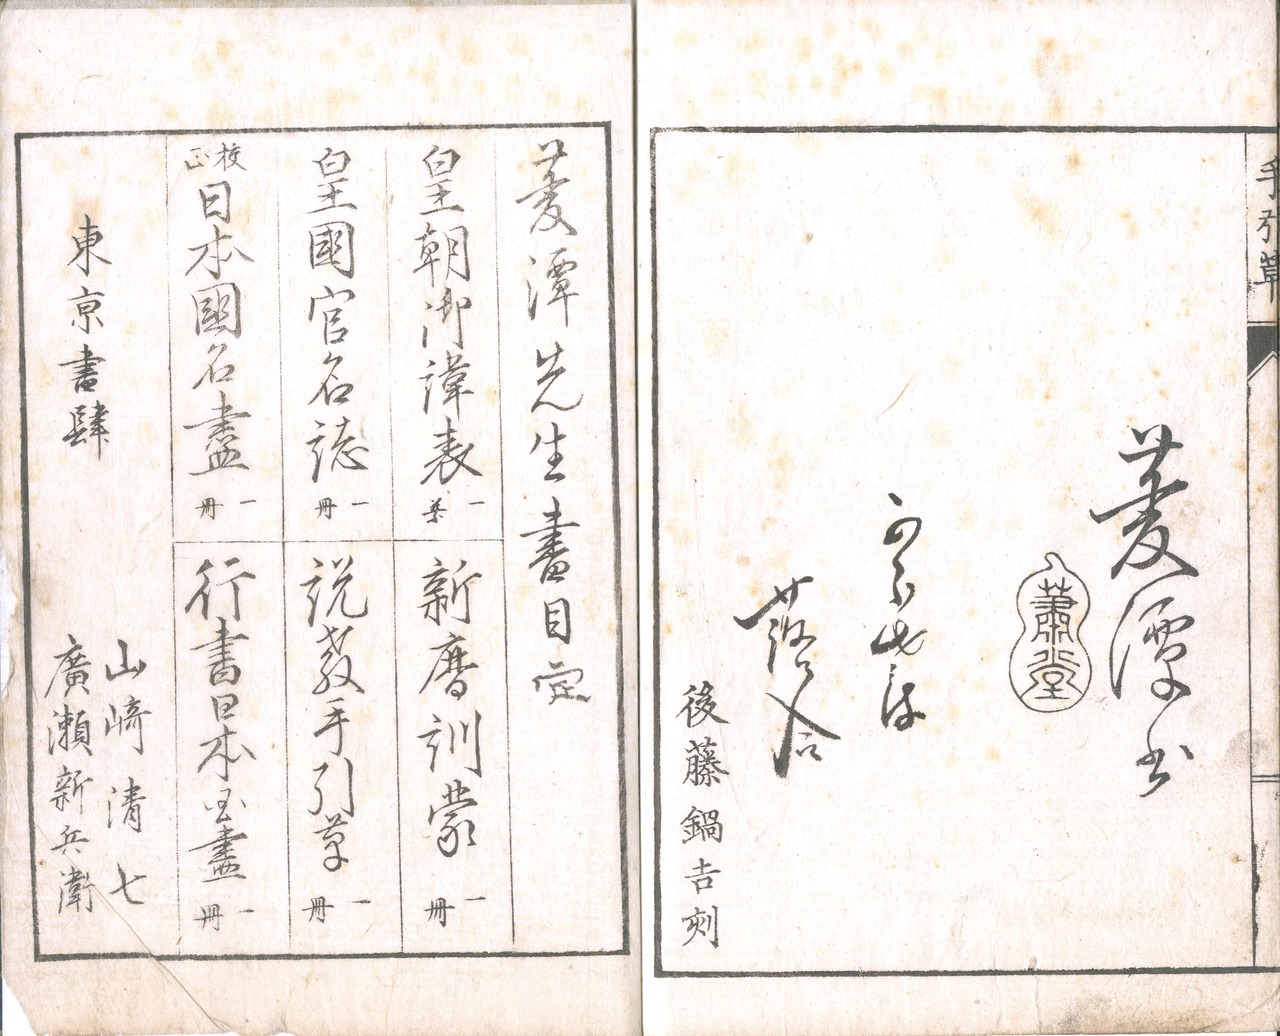 手引草
菱潭書
落合
後藤鍋吉刻
菱潭先生書目
皇朝御諱表 一葉
新暦訓蒙 一冊
皇國官名誌 一冊
説教手引草 一冊
校正 日本國名盡 一冊
行書日本国盡 一冊
東京書肆
山﨑清七
廣瀬新兵衛